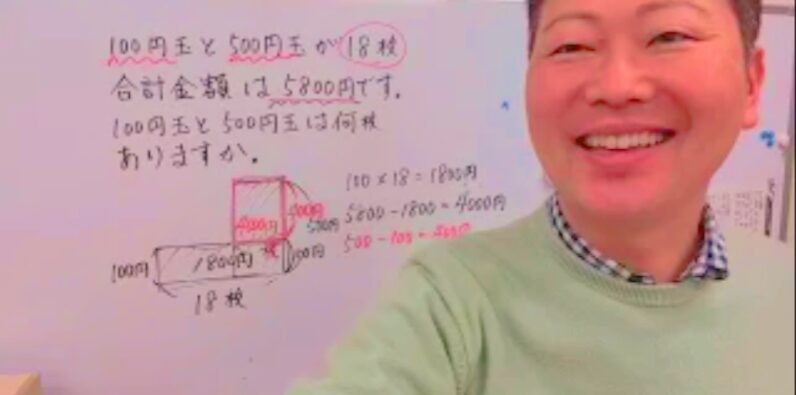 100円玉と500円玉が18枚
合計金額は5800円です。
100円玉と500円玉は何枚
ありますか。
100×18=1800円
5800-1800=4000円
500-100=400円
4000円
400円
500円
100円
1800円
100円
18枚